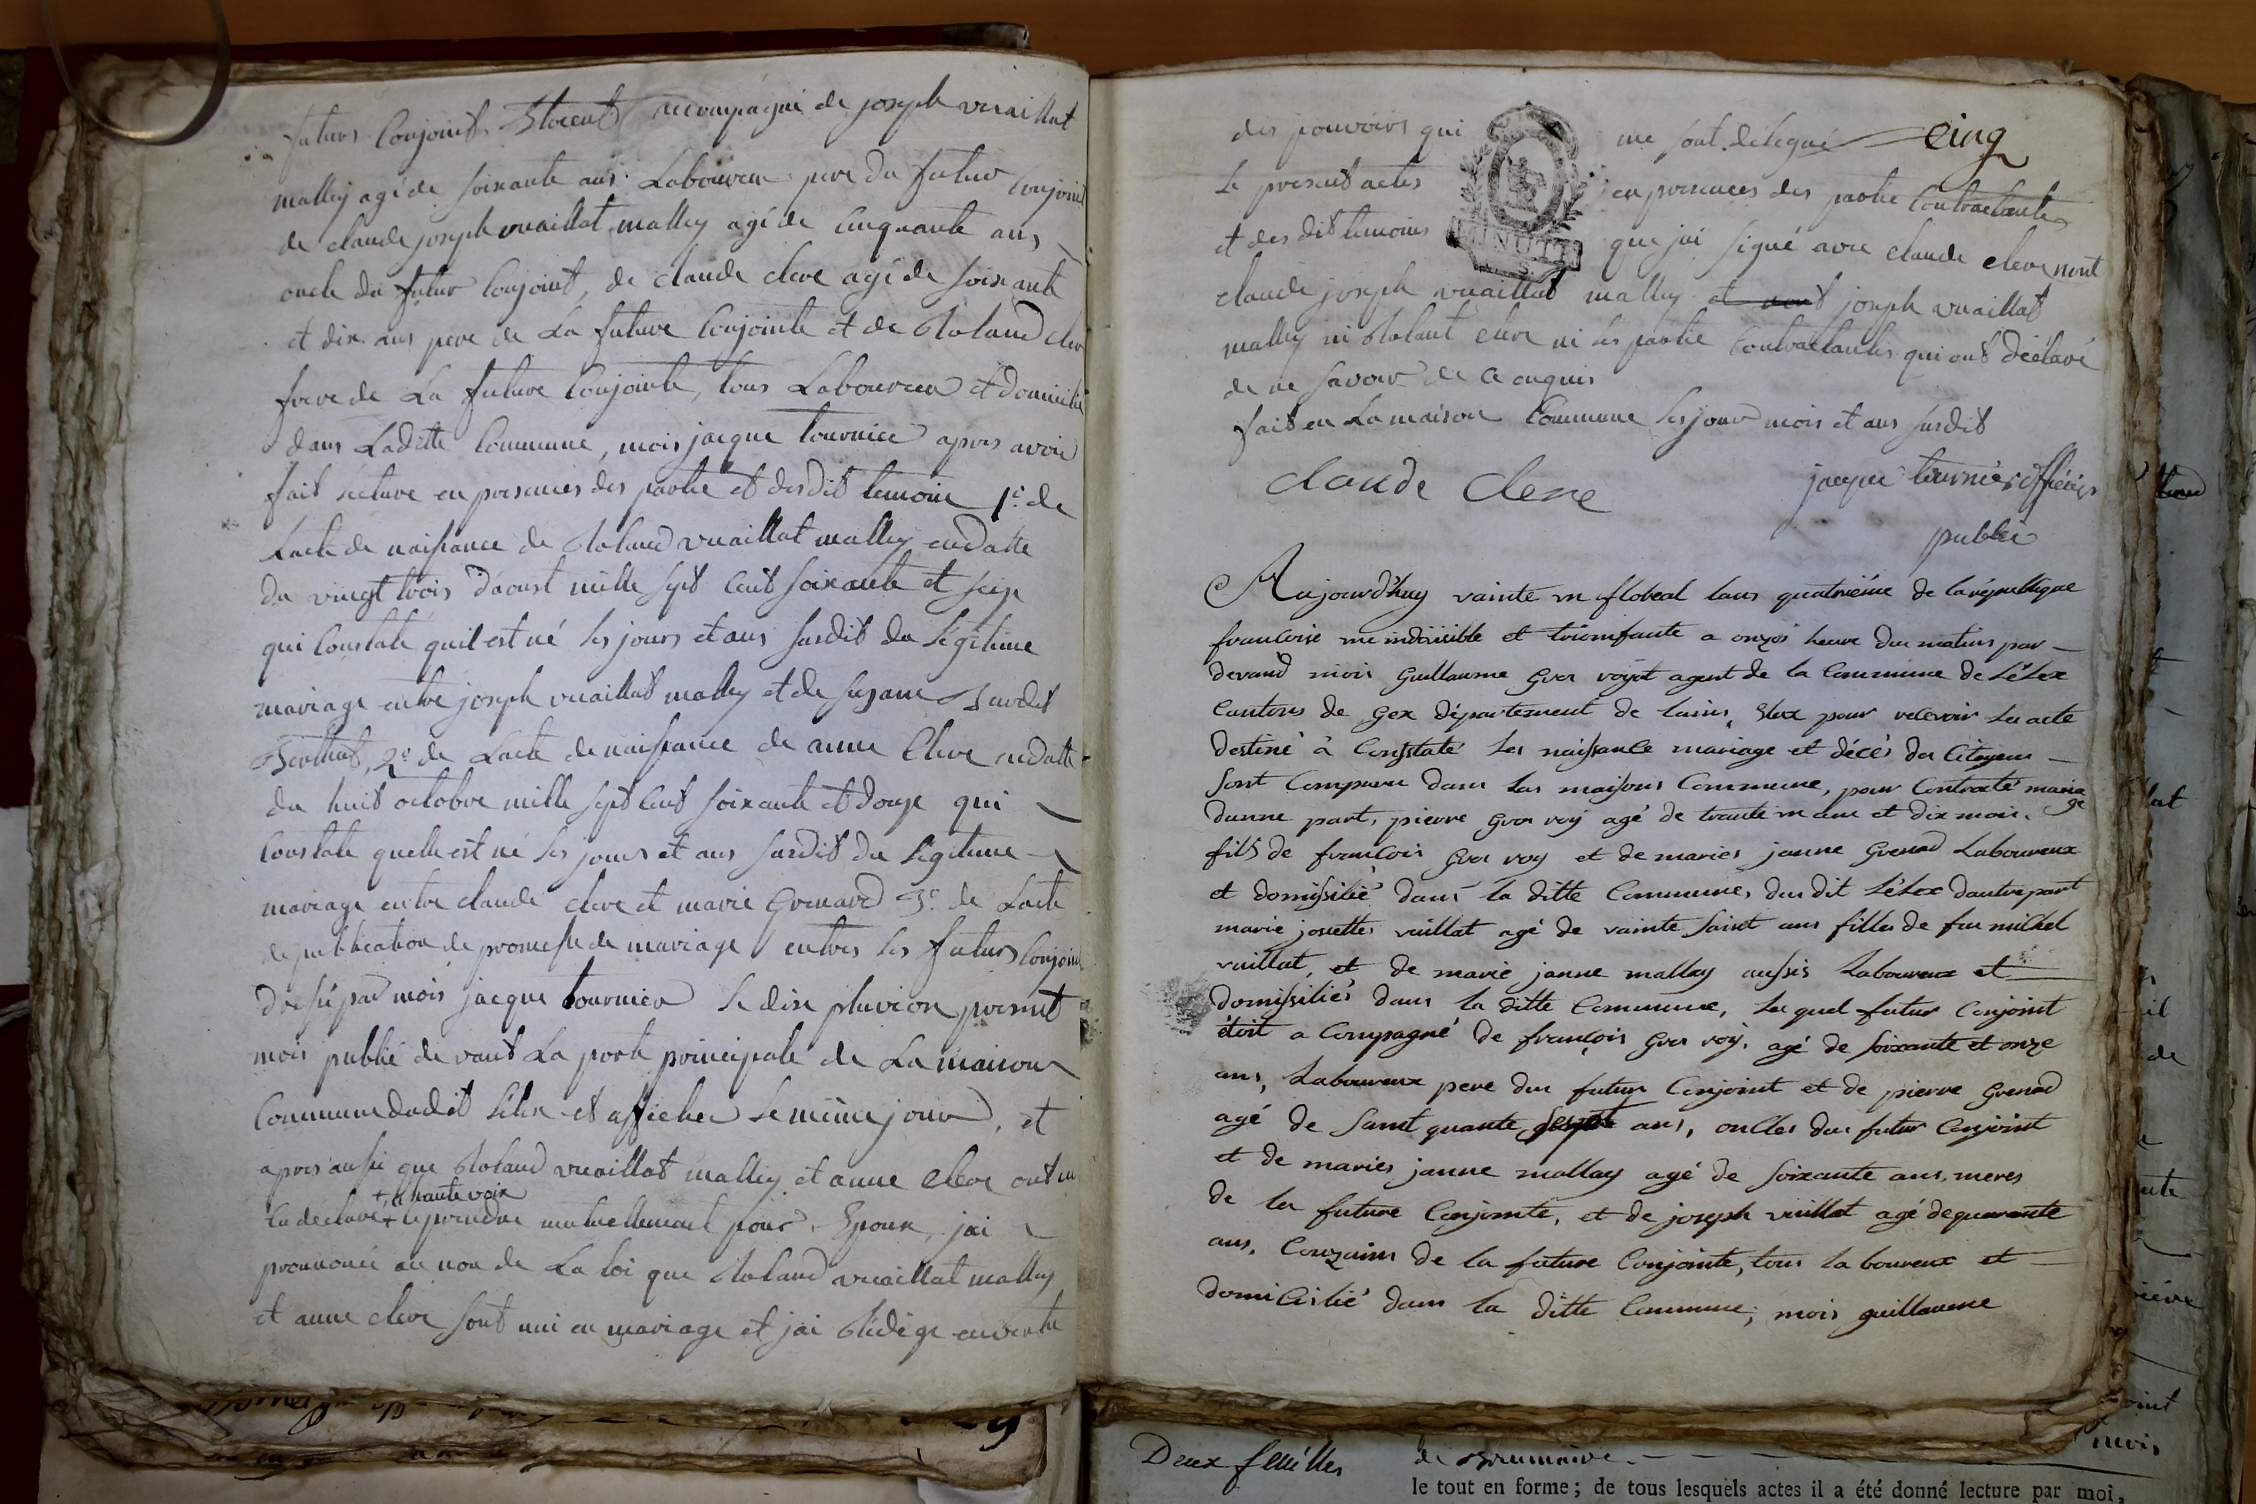 futurs Conjoints Etoient accompagné de joseph vuaillat
malley agé de soixante ans Laboureur pere du futur Conjoint
de claude joseph vuaillat malley agé de cinquante ans
oncle du futur Conjoint, de claude clerc agé de soixante
et dix ans pere de La future Conjointe et de Roland clerc
frere de La future Conjointe, tous Laboureur et domicilié
dans Laditte Commune, mois jacque tournier apres avoir
fait Lecture en presences des partie et desdit temoins 1.º de
Lacte de naissance de Roland vuaillat malley en datte
du vingt trois d'aoust mille sept Cent soixante et seize
qui Constate quil est né les jours et ans susdit du Légitime
mariage entre joseph vuaillat malley et de susane
2.º de Lacte de naissance de anne Clerc en datte
du huit octobre mille sept Cent soixante et douze qui
Constate quelle est né les jours et ans susdit du Légitime
mariage entre claude clerc et marie Grenard 3.º de Lacte
de publication de promesse de mariage entres les futurs Conjoint
dressé par mois jacque tournier le dix pluviose present
mois publié devant La porte principale de La maison
Commune dudit Lélex et afficher le même jour, et
apres aussi que Roland vuaillat malley et anne Clerc ont
+ à haute voix
declaré + se prendre mutuellement pour Epoux, jai
prononcé au non de La loi que Roland vuaillat malley
et anne clerc sont uni en mariage et jai Rédigé en vertu
des pouvoirs qui me sont delegué cinq
le present actes en presences des partie Contractantes
MINUTE
et des dit temoins que jai signé avec claude clerc nont
claude joseph vuaillat malley et joseph vuaillat
malley ni Rolant clerc ni les partie Contractantes qui ont déclaré
de ne savoir de ce enquis
fait en La maison Commune les jour mois et ans susdit
claude clerc jacque tournier officier
public
Aujourd'huy vainte un floreal lans quatriéme de la république
francoise une indivisible et triomfante a onzes heure du matins par
devand mois Guillaume Gros voyot agent de la Commune de Lélex
Cantons de Gex département de lains, Elux pour recevoir les acte
destiné à Constaté les naissance mariage et décés des Citoyens
sont Comparu dans las maisons Commune, pour Contracté mariage
dunne part, pierre Gros voy agé de trante un ans et dix mois,
fils de francois Gros voy et de maries janne Grenod Laboureux
et domissilié dans la ditte Commune, dudit Lélex dautre part
marie josette vuillat agé de vainte saint ans filles de feu michel
vuillat, et de marie janne mallay aussis Laboureux et
domissiliés dans la ditte Commune, lequel futur Conjoint
étoit a Compagné de françois Gros voy, agé de soixante et onze
ans, Laboureux pere du futur Conjoint et de pierre Grenod
agé de saint quante sept ans, oncles du futur Conjoint
et de maries janne mallay agé de soixante ans, meres
de la future Conjointe, et de joseph vuillat agé de quarante
ans, Couzains de la future Conjointe, tous laboureux et
domicilié dans la ditte Commune; mois guillaume
Deux feuilles de Brumaire.
mois
le tout en forme; de tous lesquels actes il a été donné lecture par moi,